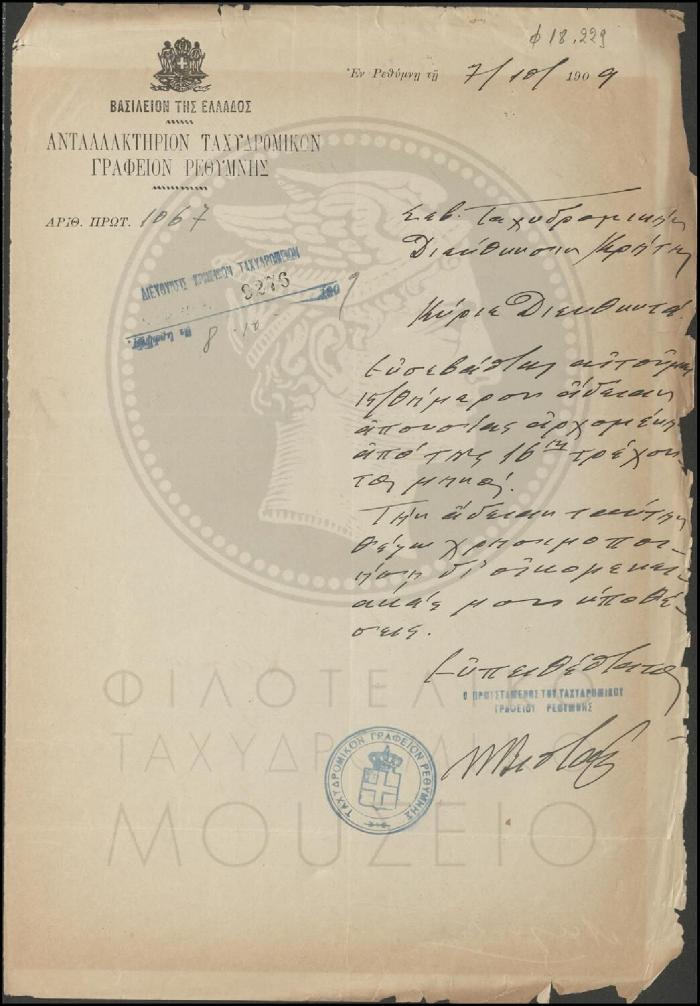 φ 18.229
Ἐν Ρεθύμνῃ τῇ 7/10/ 1909
ΒΑΣΙΛΕΙΟΝ ΤΗΣ ΕΛΛΑΔΟΣ
ΑΝΤΑΛΛΑΚΤΗΡΙΟΝ ΤΑΧΥΔΡΟΜΙΚΟΝ
ΓΡΑΦΕΙΟΝ ΡΕΘΥΜΝΗΣ
ΑΡΙΘ. ΠΡΩΤ. 1067
Σεβ. Ταχυδρομικὴν
Διεύθυνσιν Κρήτης
ΔΙΕΥΘΥΝΣΙΣ ΚΡΗΤΙΚΩΝ ΤΑΧΥΔΡΟΜΕΙΩΝ
9276
8
Κύριε Διευθυντά
Εὐσεβάστως αἰτοῦμαι
15/θήμερον ἄδειαν
ἀπουσίας ἀρχομένην
ἀπὸ τῆς 16ης τρέχον
τος μηνός.
Τὴν ἄδειαν ταύτην
θέλω χρησιμοποι-
ήσῃ δι' οἰκογενει-
ακάς μου ὑποθέ-
σεις.
Εὐπειθέστατος
Ο ΠΡΟΙΣΤΑΜΕΝΟΣ ΤΟΥ ΤΑΧΥΔΡΟΜΙΚΟΥ
ΓΡΑΦΕΙΟΥ ΡΕΘΥΜΝΗΣ
ΤΑΧΥΔΡΟΜΙΚΟΝ ΓΡΑΦΕΙΟΝ ΡΕΘΥΜΝΗΣ
ΦΙΛΟΤΕΛΙΚΟ
ΤΑΧΥΔΡΟΜΙΚΟ
ΜΟΥΣΕΙΟ